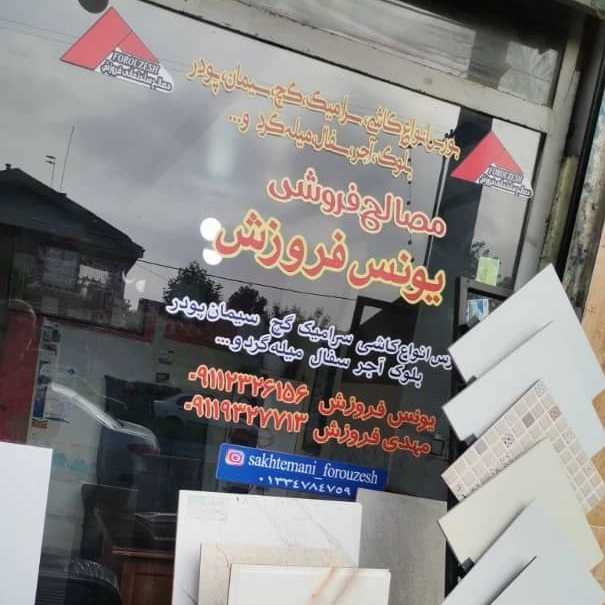 FOROUZESH
مصالح ساختمانی فروزش
بورس انواع کاشی، سرامیک، گچ، سیمان، پودر
بلوک، آجر، سفال، میله گرد و...
FOROUZESH
مصالح ساختمانی فروزش
مصالح فروشی
یونس فروزش
رس انواع کاشی سرامیک گچ سیمان پودر
بلوک آجر سفال میله گرد و...
یونس فروزش ۰۹۱۱۲۳۲۶۱۵۶
مهدی فروزش ۰۹۱۱۹۳۲۷۷۱۳
sakhtemani_forouzesh
۰۱۳۳۴۷۸۴۷۵۹